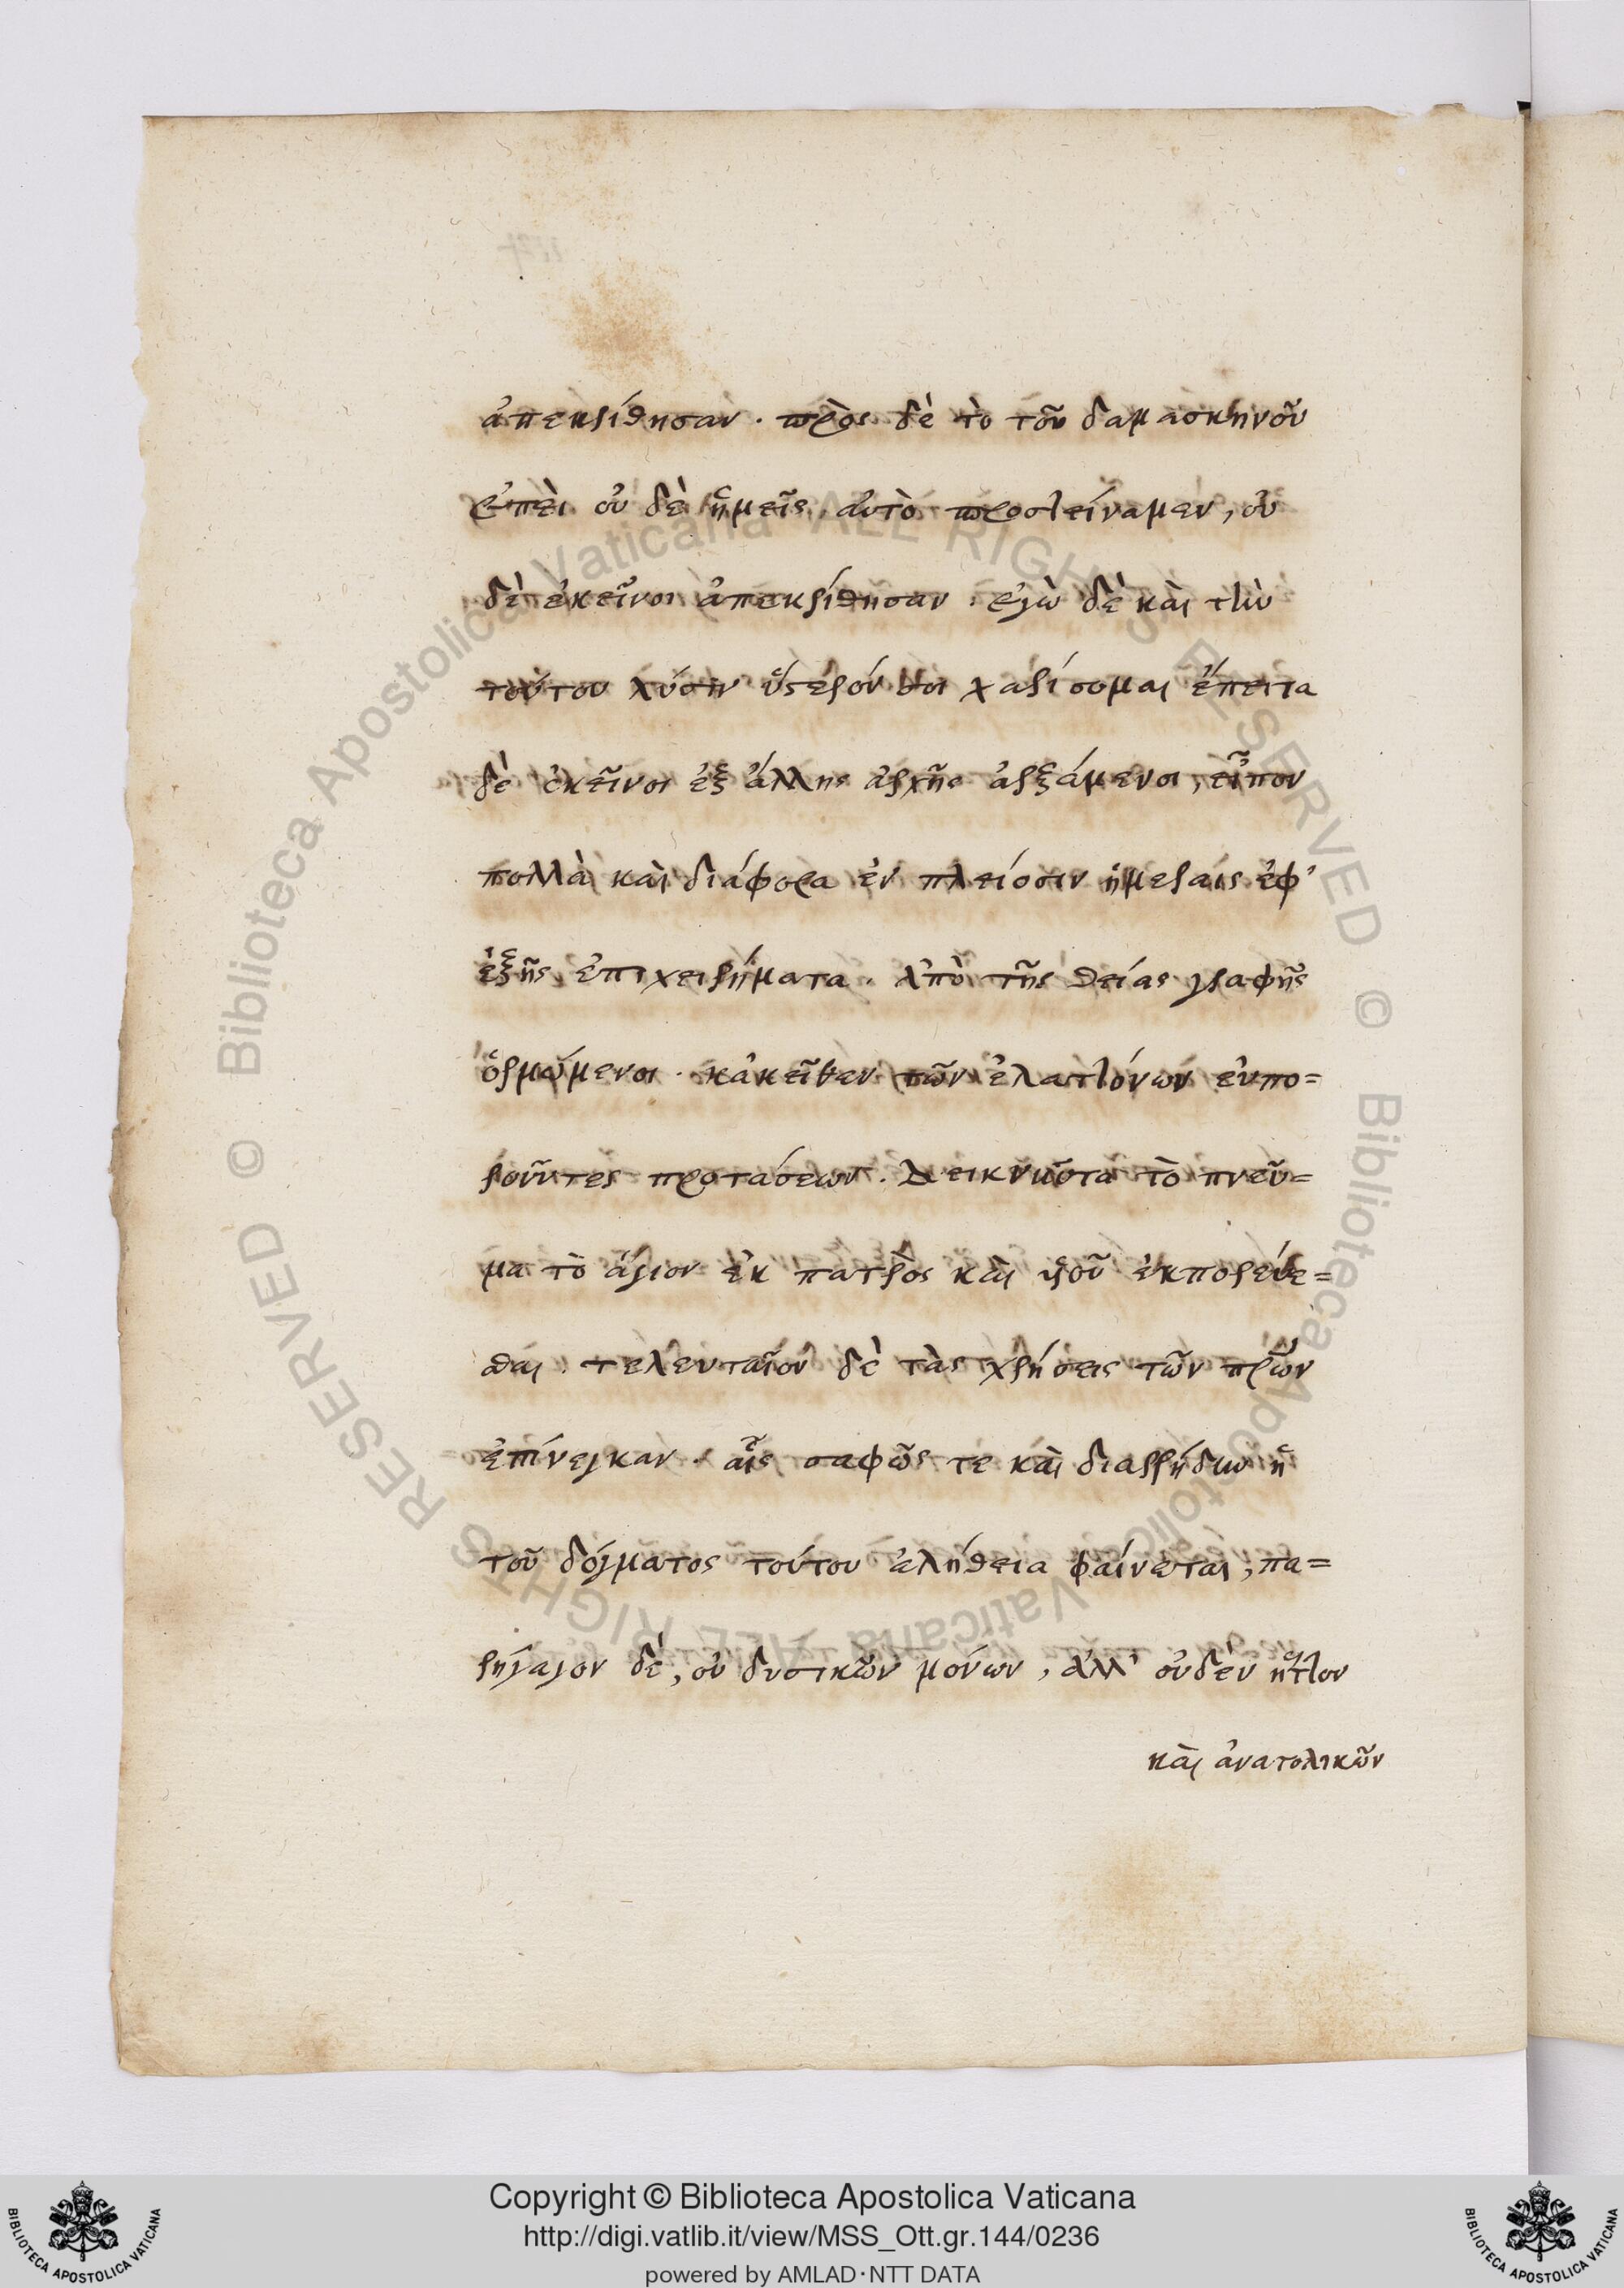 ἀπεκρίθησαν. πρὸς δὲ τὸ τοῦ δαμασκηνοῦ
ἐπεὶ οὐ δὲ ἡμεῖς αὐτὸ προὐτείναμεν, οὐ
δὲ ἐκεῖνοι ἀπεκρίθησαν. ἐγὼ δὲ καὶ τὴν
τούτου λύσιν ὕστερόν σοι χαρίσομαι ἔπειτα
δὲ ἐκεῖνοι ἐξ ἄλλης ἀρχῆς ἀρξάμενοι, εἶπον
πολλὰ καὶ διάφορα ἐν πλείοσιν ἡμέραις ἐφ'
ἑξῆς ἐπιχειρήματα. ἀπὸ τῆς θείας γραφῆς
ὁρμώμενοι. κἀκεῖθεν τῶν ἐλαττόνων εὐπο=
ροῦντες προτάσεων. Δεικνῦντα τὸ πνεῦ=
μα τὸ ἅγιον ἐκ πατρὸς καὶ υἱοῦ ἐκπορεύε=
σθαι. τελευταῖον δὲ τὰς χρήσεις τῶν πρ̅ων
ἐπήνεγκαν. αἷς σαφῶς τε καὶ διαρρήδην ἡ
τοῦ δόγματος τούτου ἀλήθεια φαίνεται, πα=
ρήγαγον δέ, οὐ δυτικῶν μόνων, ἀλλ' οὐδὲν ἧττον
καὶ ἀνατολικῶν
Copyright © Biblioteca Apostolica Vaticana
http://digi.vatlib.it/view/MSS_Ott.gr.144/0236
powered by AMLAD·NTT DATA
BIBLIOTECA APOSTOLICA VATICANA
BIBLIOTECA APOSTOLICA VATICANA
© Biblioteca Apostolica Vaticana ALL RIGHTS RESERVED
© Biblioteca Apostolica Vaticana ALL RIGHTS RESERVED